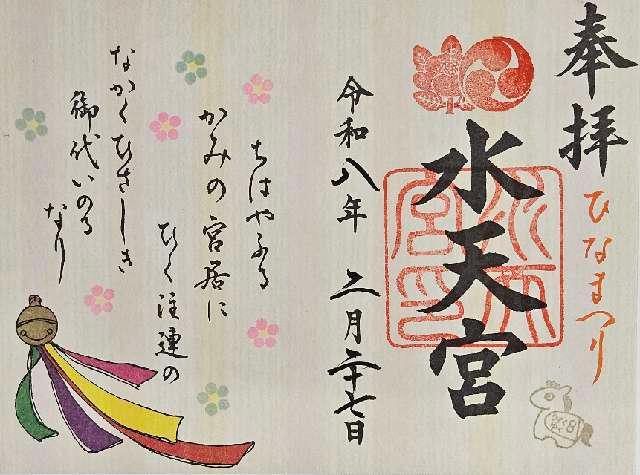 奉拝
ひなまつり
水天宮
令和八年 二月二十七日
ちはやふる
かみの宮居に
ひく注連の
なかくひさしき
御代いのる
なり